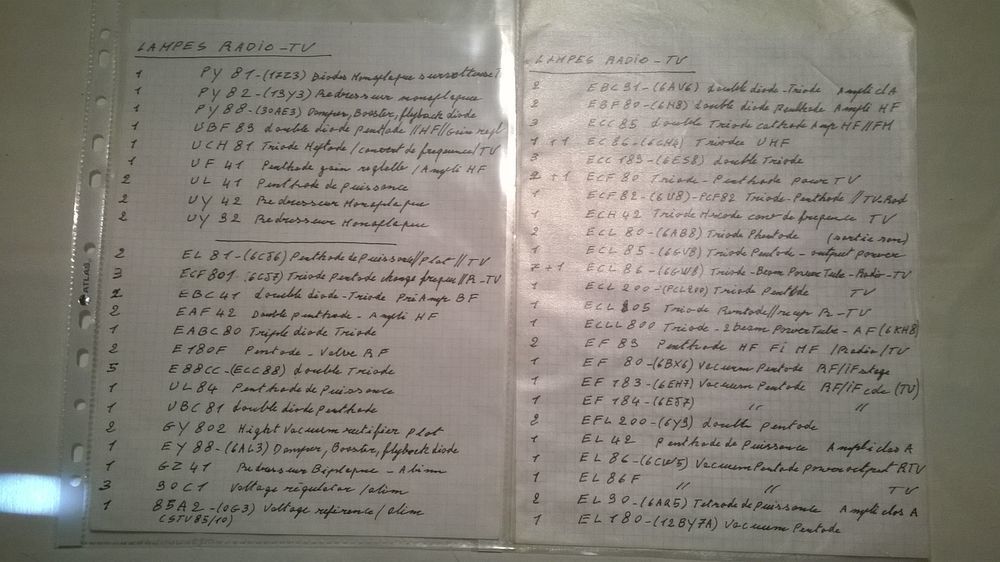 LAMPES RADIO-TV
1 PY 81-(17Z3) Diodes Monoplaque
1 PY 82-(19Y3) Redresseur monoplaque
1 PY 88-(30AE3) Damper, Booster, flyback diode
1 UBF 89 double diode Penthode // HF // Gain regl
1 UCH 81 Triode Heptode / convert de frequence / TV
1 UF 41 Penthode gain reglable / Ampli HF
2 UL 41 Penthode de Puissance
2 UY 42 Redresseur Monoplaque
2 UY 92 Redresseur Monoplaque
2 EL 81-(6CJ6) Penthode de Puissance // plot // TV
3 ECF 801 (6CJ7) Triode Pentode change freque // R-TV
2 EBC 41 double diode-Triode PréAmpr BF
2 EAF 42 Double penthode-Ampli HF
1 EABC 80 Triple diode Triode
2 E180F Pentode-Valve RF
5 E88CC-(ECC88) double Triode
1 UL 84 Penthode de Puissance
1 UBC 81 double diode Penthode
2 GY 802 Hight Vacuum rectifier Plot
1 EY 88-(6AL3) Damper, Booster, flyback diode
1 GZ 41 Redresseur Biplaque-Alim
3 90C1 Voltage régulator / alim
1 85A2-(0G3) Voltage référence / alim
(STV85/10)
ATLAS
LAMPES RADIO-TV
2 EBC 91-(6AV6) double diode-Triode Ampli cl A
2 EBF 80-(6N8) double diode Penthode Ampli HF
3 ECC 85 double Triode cathode Ampr HF // FM
1 +1 EC 86-(6CM4) Triodes UHF
3 ECC 189-(6ES8) double Triode
2 +1 ECF 80 Triode-Penthode pour TV
1 ECF 82-(6U8)-PCF82 Triode-Penthode // TV-Rad
1 ECH 42 Triode Hexode conv de frequence TV
2 ECL 80-(6AB8) Triode Phentode (sortie son)
1 ECL 85-(6GV8) Triode Pentode-output power
7 +1 ECL 86-(6GW8) Triode-Beam Power Tube-Radio-TV
1 ECL 200-(PCL200) Triode Pentode TV
1 ECL 805 Triode Pentode // recep R-TV
1 ECLL 800 Triode-2 beam Power Tube-AF (6KH8)
2 EF 89 Penthode HF Fi MF / Radio / TV
1 EF 80-(6BX6) Vacuum Pentode RF/IF stage
1 EF 183-(6EH7) Vacuum Pentode RF/IF cde (TV)
1 EF 184-(6EJ7) // //
2 EFL 200-(6Y9) double Pentode
1 EL 42 Penthode de Puissance Ampli clas A
1 EL 86-(6CW5) Vacuum Pentode power output RTV
1 EL 86F // // TV
2 EL 90-(6AQ5) Tetrode de Puissance Ampli clas A
1 EL 180-(12BY7A) Vacuum Pentode